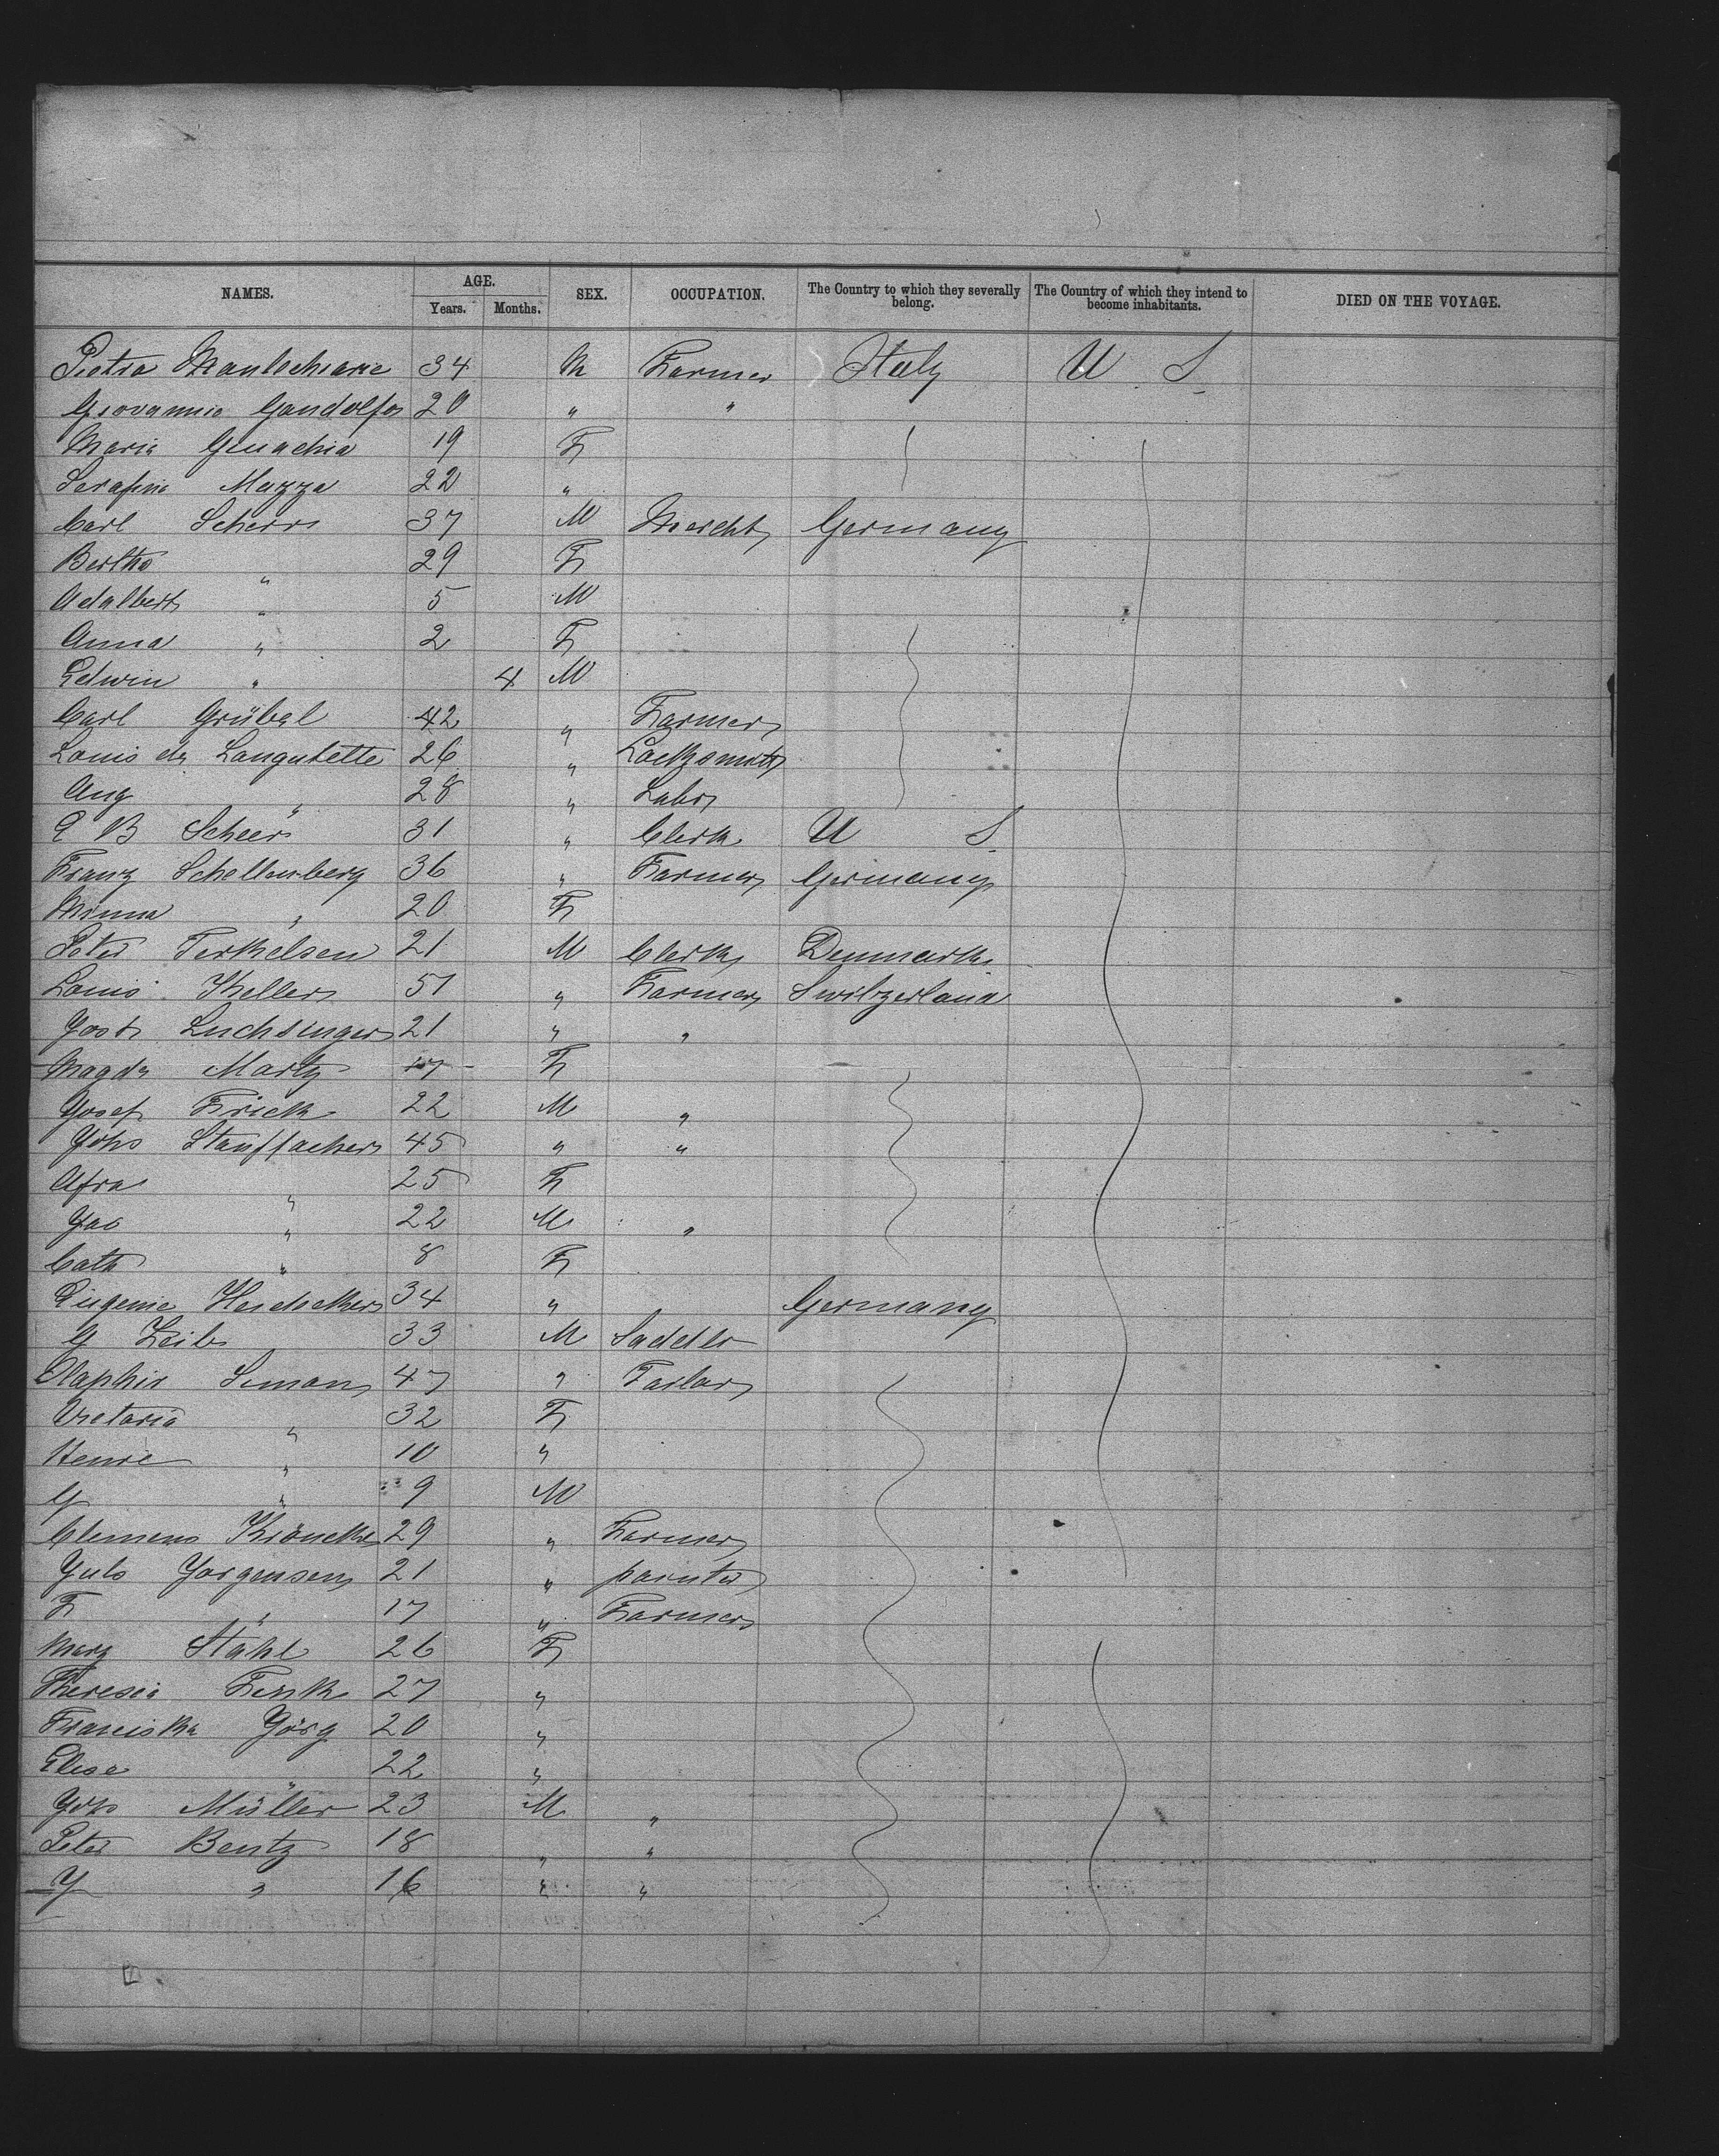 NAMES. AGE. Years. Months. SEX. OCCUPATION. The Country to which they severally belong. The Country of which they intend to become inhabitants. DIED ON THE VOYAGE.
Pietra 34 M Farmer Italy U S
Giovannie Gandolfo 20 " "
Maria 19 F
Serafina Mazza 22 "
Carl Scherr 37 M Mercht Germany
Bertha " 29 F
Adalbert " 5 M
Anna " 2 F
Edwin " 4 M
Carl Grübel 42 " Farmer
Louis de Langutette 26 " Locksmith
Aug " 28 " Labr
E B Scheer 31 " Clerk U S
Franz Schellenberg 36 " Farmer Germany
Minna " 20 F
Peter Terkelsen 21 M Clerk Denmark
Louis Keller 51 " Farmer Switzerland
Jost Luchsinger 21 " "
Magda Marty 47 F
Josef Frick 22 M "
Johs Stauffacher 45 " "
Afra " 25 F
Jac " 22 M "
Cath " 8 F
Eugenie 34 " Germany
G Leib 33 M Saddler
Simon 47 " Tailor
" 32 F
Henre " 10 "
G " 9 M
Clemens Kröncke 29 " Farmer
Juls Jorgensen 21 " painter
F " 17 " Farmer
Marg Stahl 26 F
Theresia Fenk 27 "
Franciska Görg 20 "
Elisa " 22 "
Johs Müller 23 M "
Peter Bentz 18 " "
J " 16 " "